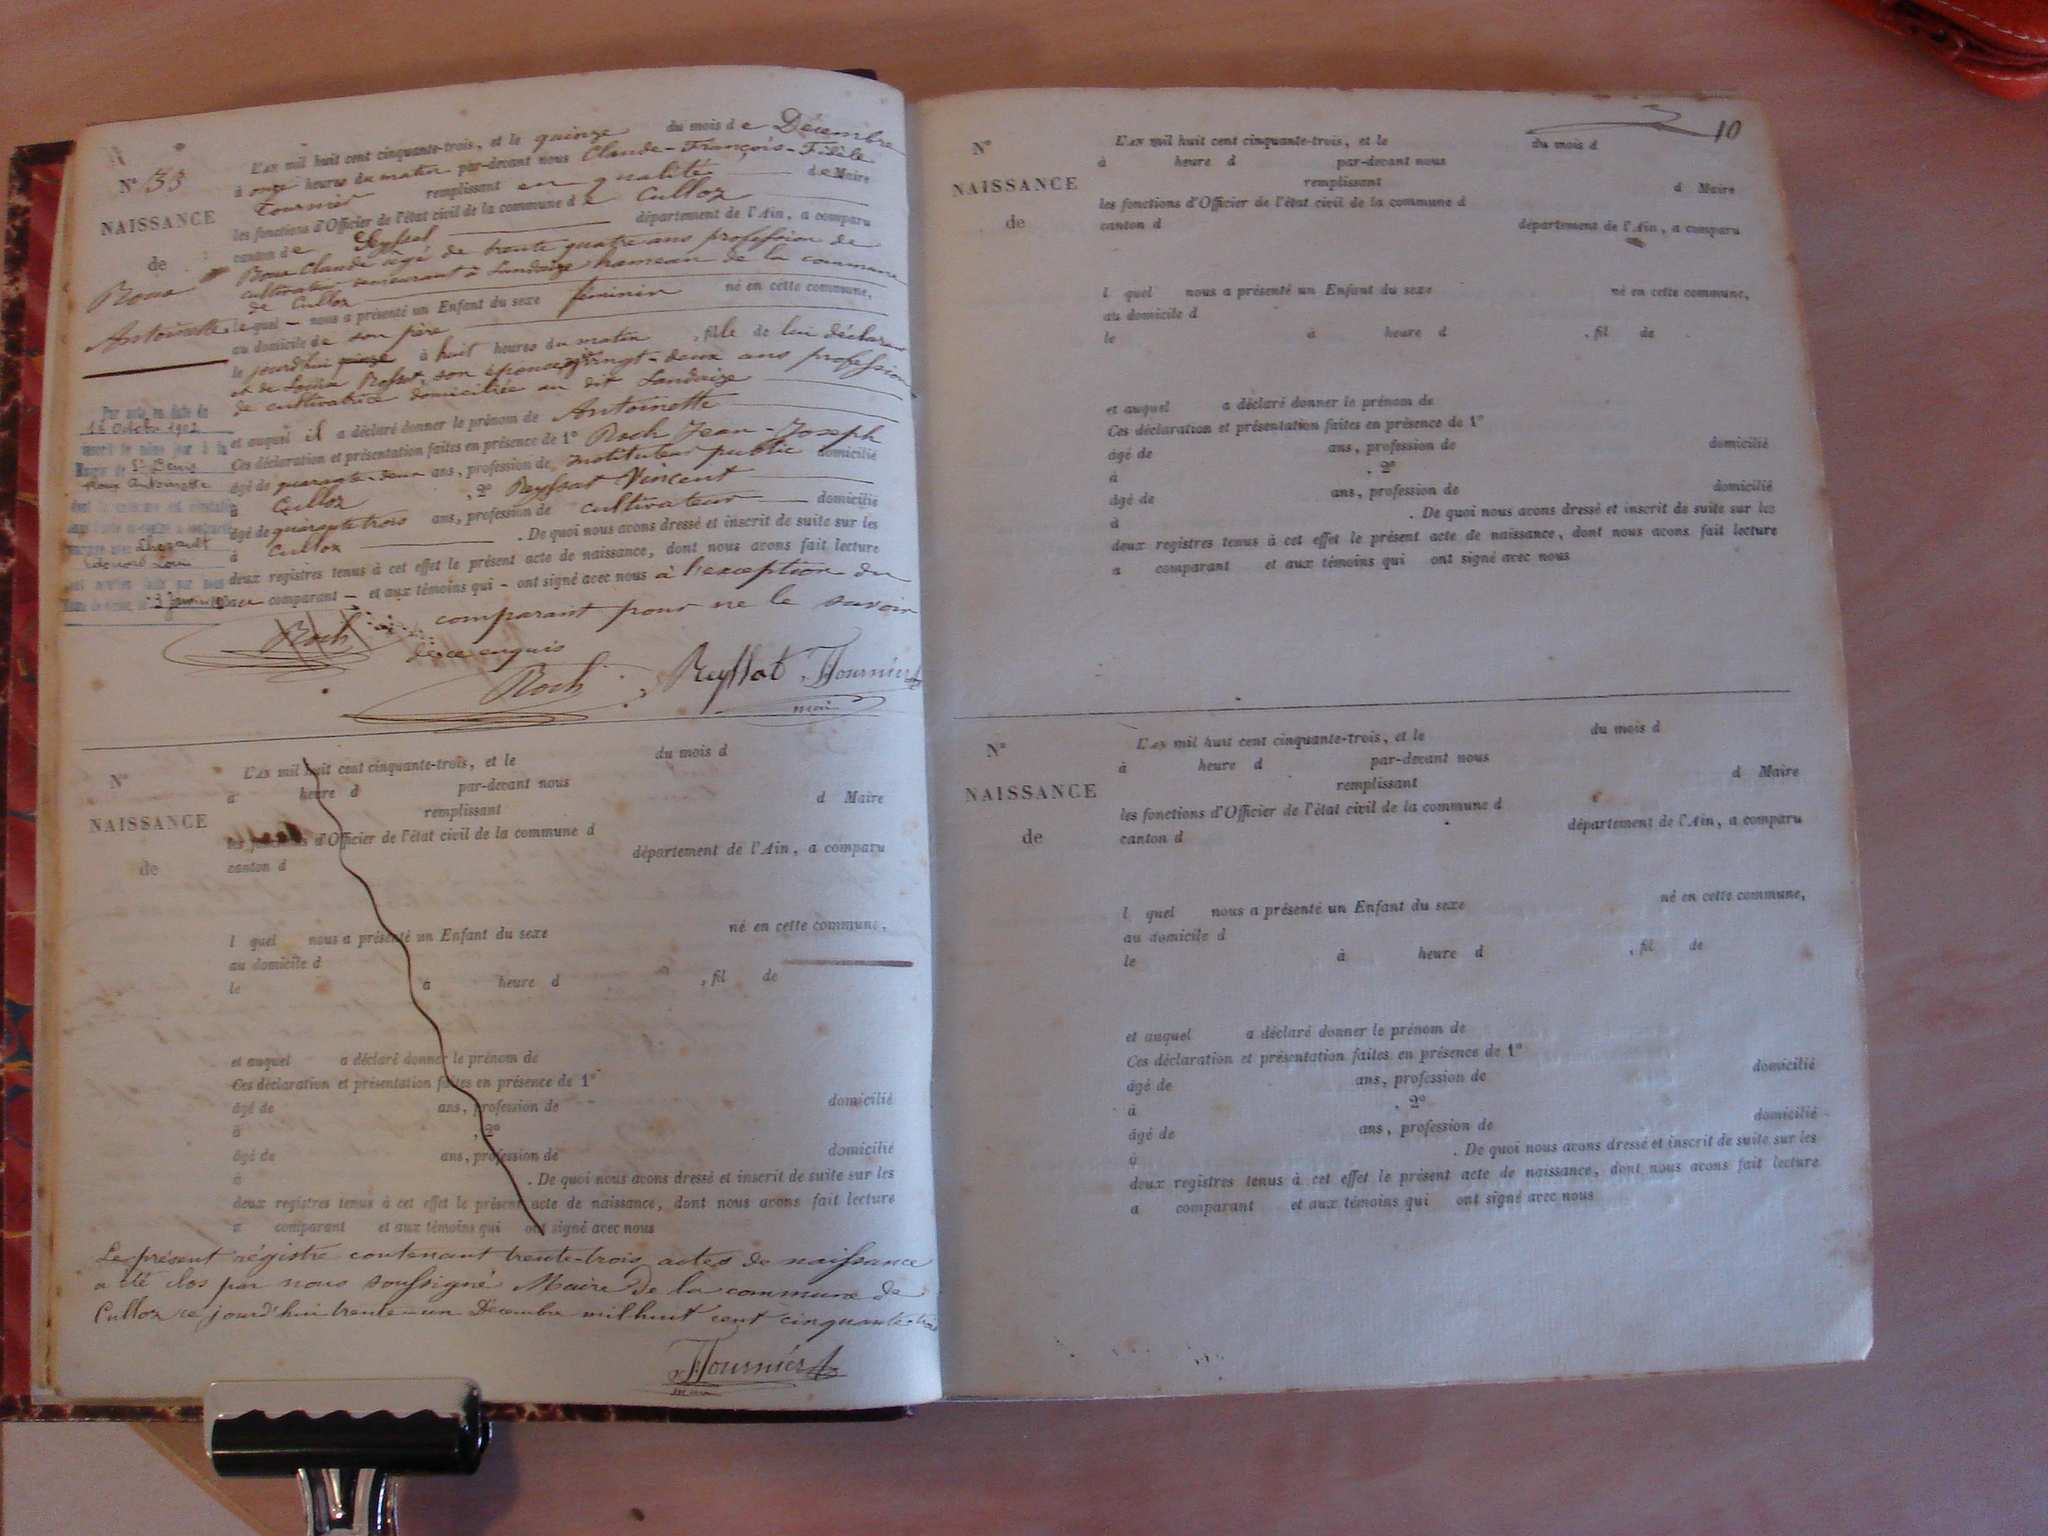 N° 33
NAISSANCE
de
Roux
Antoinette
L'AN mil huit cent cinquante-trois, et le quinze du mois de Décembre
à onze heures du matin par-devant nous Claude-François-Fidèle
Fournier remplissant en qualité de Maire
les fonctions d'Officier de l'état civil de la commune de Culloz
canton de Seyssel département de l'Ain, a comparu
Roux Claude âgé de trente quatre ans profession de
cultivateur demeurant à Landaize hameau de la commune
de Culloz
lequel nous a présenté un Enfant du sexe féminin né en cette commune,
au domicile de son père
le jourd'hui quinze à huit heures du matin, fille de lui déclarant
et de Louise Rossat, son épouse vingt-deux ans profession
de cultivatrice domiciliée au dit Landaize
et auquel il a déclaré donner le prénom de Antoinette
Ces déclaration et présentation faites en présence de 1° Roch Jean-Joseph
âgé de quarante-deux ans, profession de instituteur public domicilié
à Culloz, 2° Reyssat Vincent
âgé de quarante trois ans, profession de cultivateur domicilié
à Culloz. De quoi nous avons dressé et inscrit de suite sur les
deux registres tenus à cet effet le présent acte de naissance, dont nous avons fait lecture
au comparant et aux témoins qui ont signé avec nous à l'exception du
comparant pour ne le savoir
de ce enquis
Roch
Roch Reyssat Fournier
maire
Par acte en date du
16 Octobre 1902
inscrit le même jour à la
Mairie de St Denis
Roux Antoinette
mariage avec Lherault
Edouard Louis
N°
NAISSANCE
de
L'AN mil huit cent cinquante-trois, et le du mois d
à heure d par-devant nous
remplissant d Maire
les fonctions d'Officier de l'état civil de la commune d
canton d département de l'Ain, a comparu
l quel nous a présenté un Enfant du sexe né en cette commune,
au domicile d
le à heure d , fil de
et auquel a déclaré donner le prénom de
Ces déclaration et présentation faites en présence de 1°
âgé de ans, profession de domicilié
à , 2°
âgé de ans, profession de domicilié
à . De quoi nous avons dressé et inscrit de suite sur les
deux registres tenus à cet effet le présent acte de naissance, dont nous avons fait lecture
a comparant et aux témoins qui ont signé avec nous
Le présent régistre contenant trente-trois actes de naissance
a été clos par nous soussigné Maire de la commune de
Culloz ce jourd'hui trente-un Décembre mil huit cent cinquante-trois
Fournier
maire
10
N°
NAISSANCE
de
L'AN mil huit cent cinquante-trois, et le du mois d
à heure d par-devant nous
remplissant d Maire
les fonctions d'Officier de l'état civil de la commune d
canton d département de l'Ain, a comparu
l quel nous a présenté un Enfant du sexe né en cette commune,
au domicile d
le à heure d , fil de
et auquel a déclaré donner le prénom de
Ces déclaration et présentation faites en présence de 1°
âgé de ans, profession de domicilié
à , 2°
âgé de ans, profession de domicilié
à . De quoi nous avons dressé et inscrit de suite sur les
deux registres tenus à cet effet le présent acte de naissance, dont nous avons fait lecture
a comparant et aux témoins qui ont signé avec nous
N°
NAISSANCE
de
L'AN mil huit cent cinquante-trois, et le du mois d
à heure d par-devant nous
remplissant d Maire
les fonctions d'Officier de l'état civil de la commune d
canton d département de l'Ain, a comparu
l quel nous a présenté un Enfant du sexe né en cette commune,
au domicile d
le à heure d , fil de
et auquel a déclaré donner le prénom de
Ces déclaration et présentation faites en présence de 1°
âgé de ans, profession de domicilié
à , 2°
âgé de ans, profession de domicilié
à . De quoi nous avons dressé et inscrit de suite sur les
deux registres tenus à cet effet le présent acte de naissance, dont nous avons fait lecture
a comparant et aux témoins qui ont signé avec nous